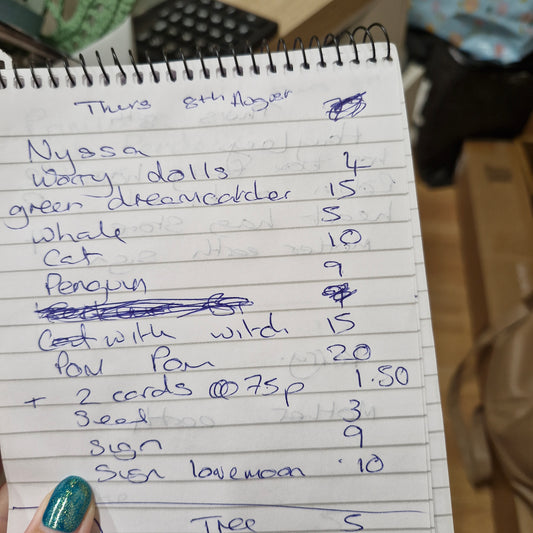 Thurs 8th August
Nyssa
worry dolls 4
green dreamcatcher 15
whale 5
Cat 10
Penguin 9
Cat with witch 15
Pom Pom 20
+ 2 cards @ 75p 1.50
Seal 3
Sign 9
Sign love moon 10
Tree 5